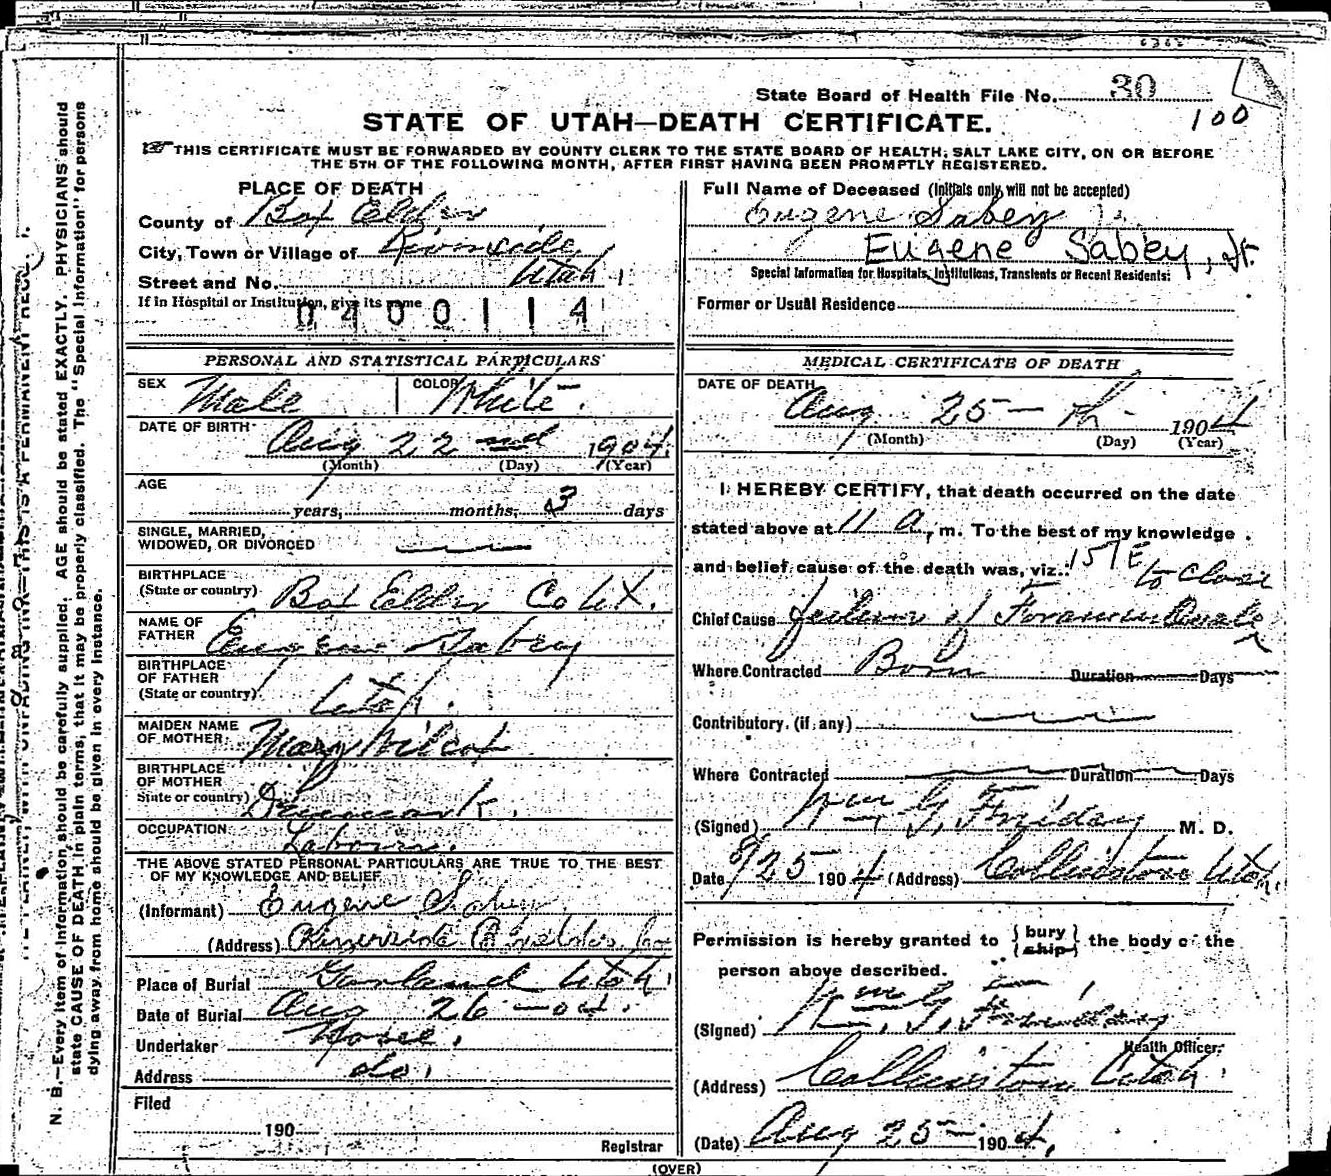 State Board of Health File No. 30
100
STATE OF UTAH—DEATH CERTIFICATE.
THIS CERTIFICATE MUST BE FORWARDED BY COUNTY CLERK TO THE STATE BOARD OF HEALTH, SALT LAKE CITY, ON OR BEFORE
THE 5TH OF THE FOLLOWING MONTH, AFTER FIRST HAVING BEEN PROMPTLY REGISTERED.
PLACE OF DEATH
County of Box Elder
City, Town or Village of Riverside
Street and No. Utah
If in Hospital or Institution, give its name
0400114
PERSONAL AND STATISTICAL PARTICULARS
SEX Male COLOR White
DATE OF BIRTH Aug 22 nd 1904
(Month) (Day) (Year)
AGE
years, months, 3 days
SINGLE, MARRIED,
WIDOWED, OR DIVORCED
BIRTHPLACE
(State or country) Box Elder Co Ut.
NAME OF
FATHER Eugene Sabey
BIRTHPLACE
OF FATHER
(State or country) Utah.
MAIDEN NAME
OF MOTHER Mary Wilcox
BIRTHPLACE
OF MOTHER
State or country) Denmark.
OCCUPATION Laborer.
THE ABOVE STATED PERSONAL PARTICULARS ARE TRUE TO THE BEST
OF MY KNOWLEDGE AND BELIEF
(Informant) Eugene Sabey
(Address) Riverside B. Elder Co
Place of Burial Garland Utah
Date of Burial Aug 26 - 04.
Undertaker None.
Address do.
Filed
190
Registrar
Full Name of Deceased (Initials only will not be accepted)
Eugene Sabey
Eugene Sabey, Jr.
Special Information for Hospitals, Institutions, Transients or Recent Residents:
Former or Usual Residence
MEDICAL CERTIFICATE OF DEATH
DATE OF DEATH
Aug 25 - th 1904
(Month) (Day) (Year)
I HEREBY CERTIFY, that death occurred on the date
stated above at 11 a, m. To the best of my knowledge
and belief cause of the death was, viz.: 157E to close
Chief Cause Failure of Foramen Ovale
Where Contracted Born Duration Days
Contributory. (if any)
Where Contracted Duration Days
(Signed) Wm G, Friday M. D.
Date 8/25 1904 (Address) Collinston Utah.
Permission is hereby granted to {bury ship} the body of the
person above described.
(Signed) Wm, G, Friday
Health Officer.
(Address) Collinston Utah
(Date) Aug 25 - 1904,
(OVER)
N. B.—Every item of information should be carefully supplied. AGE should be stated EXACTLY. PHYSICIANS should
state CAUSE OF DEATH in plain terms, that it may be properly classified. The "Special Information" for persons
dying away from home should be given in every instance.